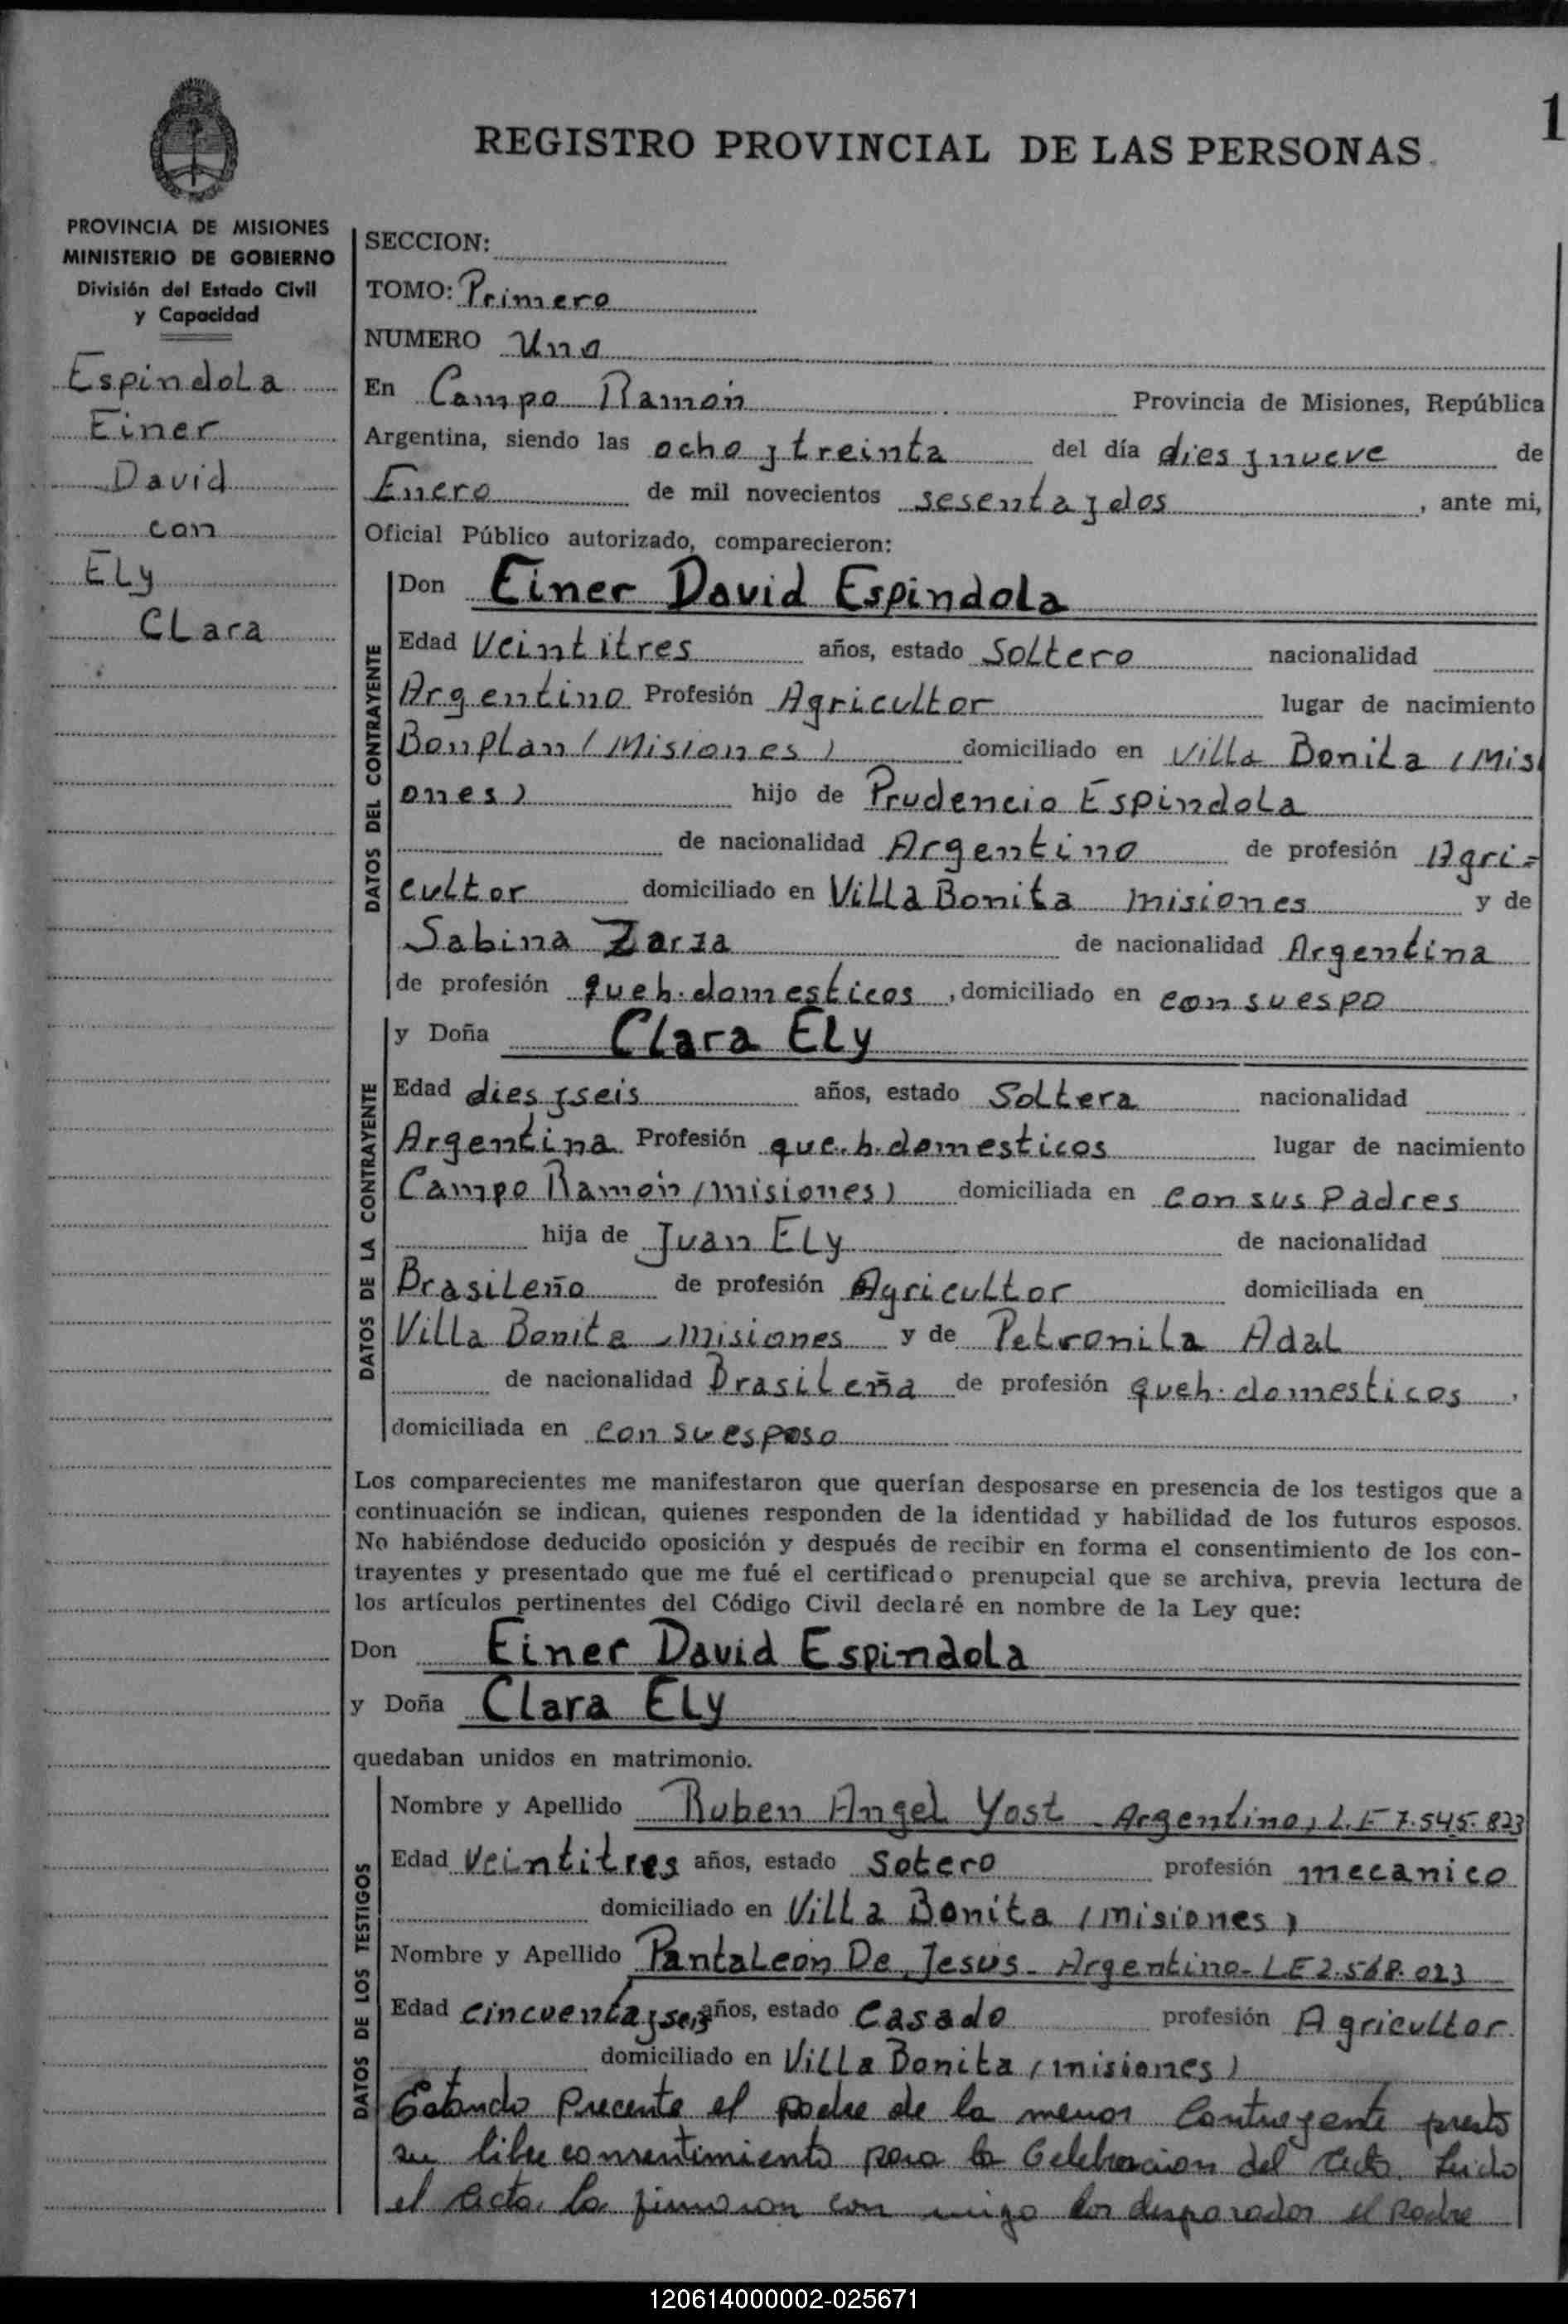 1
REGISTRO PROVINCIAL DE LAS PERSONAS
PROVINCIA DE MISIONES
MINISTERIO DE GOBIERNO
División del Estado Civil
y Capacidad
Espindola
Einer
David
con
Ely
Clara
SECCION:
TOMO: Primero
NUMERO Uno
En Campo Ramón Provincia de Misiones, República
Argentina, siendo las ocho y treinta del día dies y nueve de
Enero de mil novecientos sesenta y dos, ante mi,
Oficial Público autorizado, comparecieron:
DATOS DEL CONTRAYENTE
Don Einer David Espindola
Edad Veintitres años, estado Soltero nacionalidad
Argentino Profesión Agricultor lugar de nacimiento
Bonplan (Misiones) domiciliado en Villa Bonita (Misi
ones) hijo de Prudencio Espindola
de nacionalidad Argentino de profesión Agri=
cultor domiciliado en Villa Bonita misiones y de
Sabina Zarza de nacionalidad Argentina
de profesión queh. domesticos, domiciliado en con su espo
DATOS DE LA CONTRAYENTE
y Doña Clara Ely
Edad dies y seis años, estado Soltera nacionalidad
Argentina Profesión que.h.domesticos lugar de nacimiento
Campo Ramón (misiones) domiciliada en con sus Padres
hija de Juan Ely de nacionalidad
Brasileño de profesión Agricultor domiciliada en
Villa Bonita - misiones y de Petronila Adal
de nacionalidad Brasileña de profesión queh. domesticos,
domiciliada en con su esposo
Los comparecientes me manifestaron que querían desposarse en presencia de los testigos que a
continuación se indican, quienes responden de la identidad y habilidad de los futuros esposos.
No habiéndose deducido oposición y después de recibir en forma el consentimiento de los con-
trayentes y presentado que me fué el certificado prenupcial que se archiva, previa lectura de
los artículos pertinentes del Código Civil declaré en nombre de la Ley que:
Don Einer David Espindola
y Doña Clara Ely
quedaban unidos en matrimonio.
DATOS DE LOS TESTIGOS
Nombre y Apellido Ruben Angel Yost - Argentino, L.E 7.545.823
Edad Veintitres años, estado Sotero profesión mecanico
domiciliado en Villa Bonita (misiones)
Nombre y Apellido Pantaleón De Jesús - Argentino - LE 2.568.023
Edad cincuenta y seis años, estado Casado profesión Agricultor
domiciliado en Villa Bonita (misiones)
Estando Precente el padre de la menor Contrayente presto
su libre consentimiento para la Celebracion del Acto. Leido
el Acta la firmaron con migo los desposados el Padre
120614000002-025671